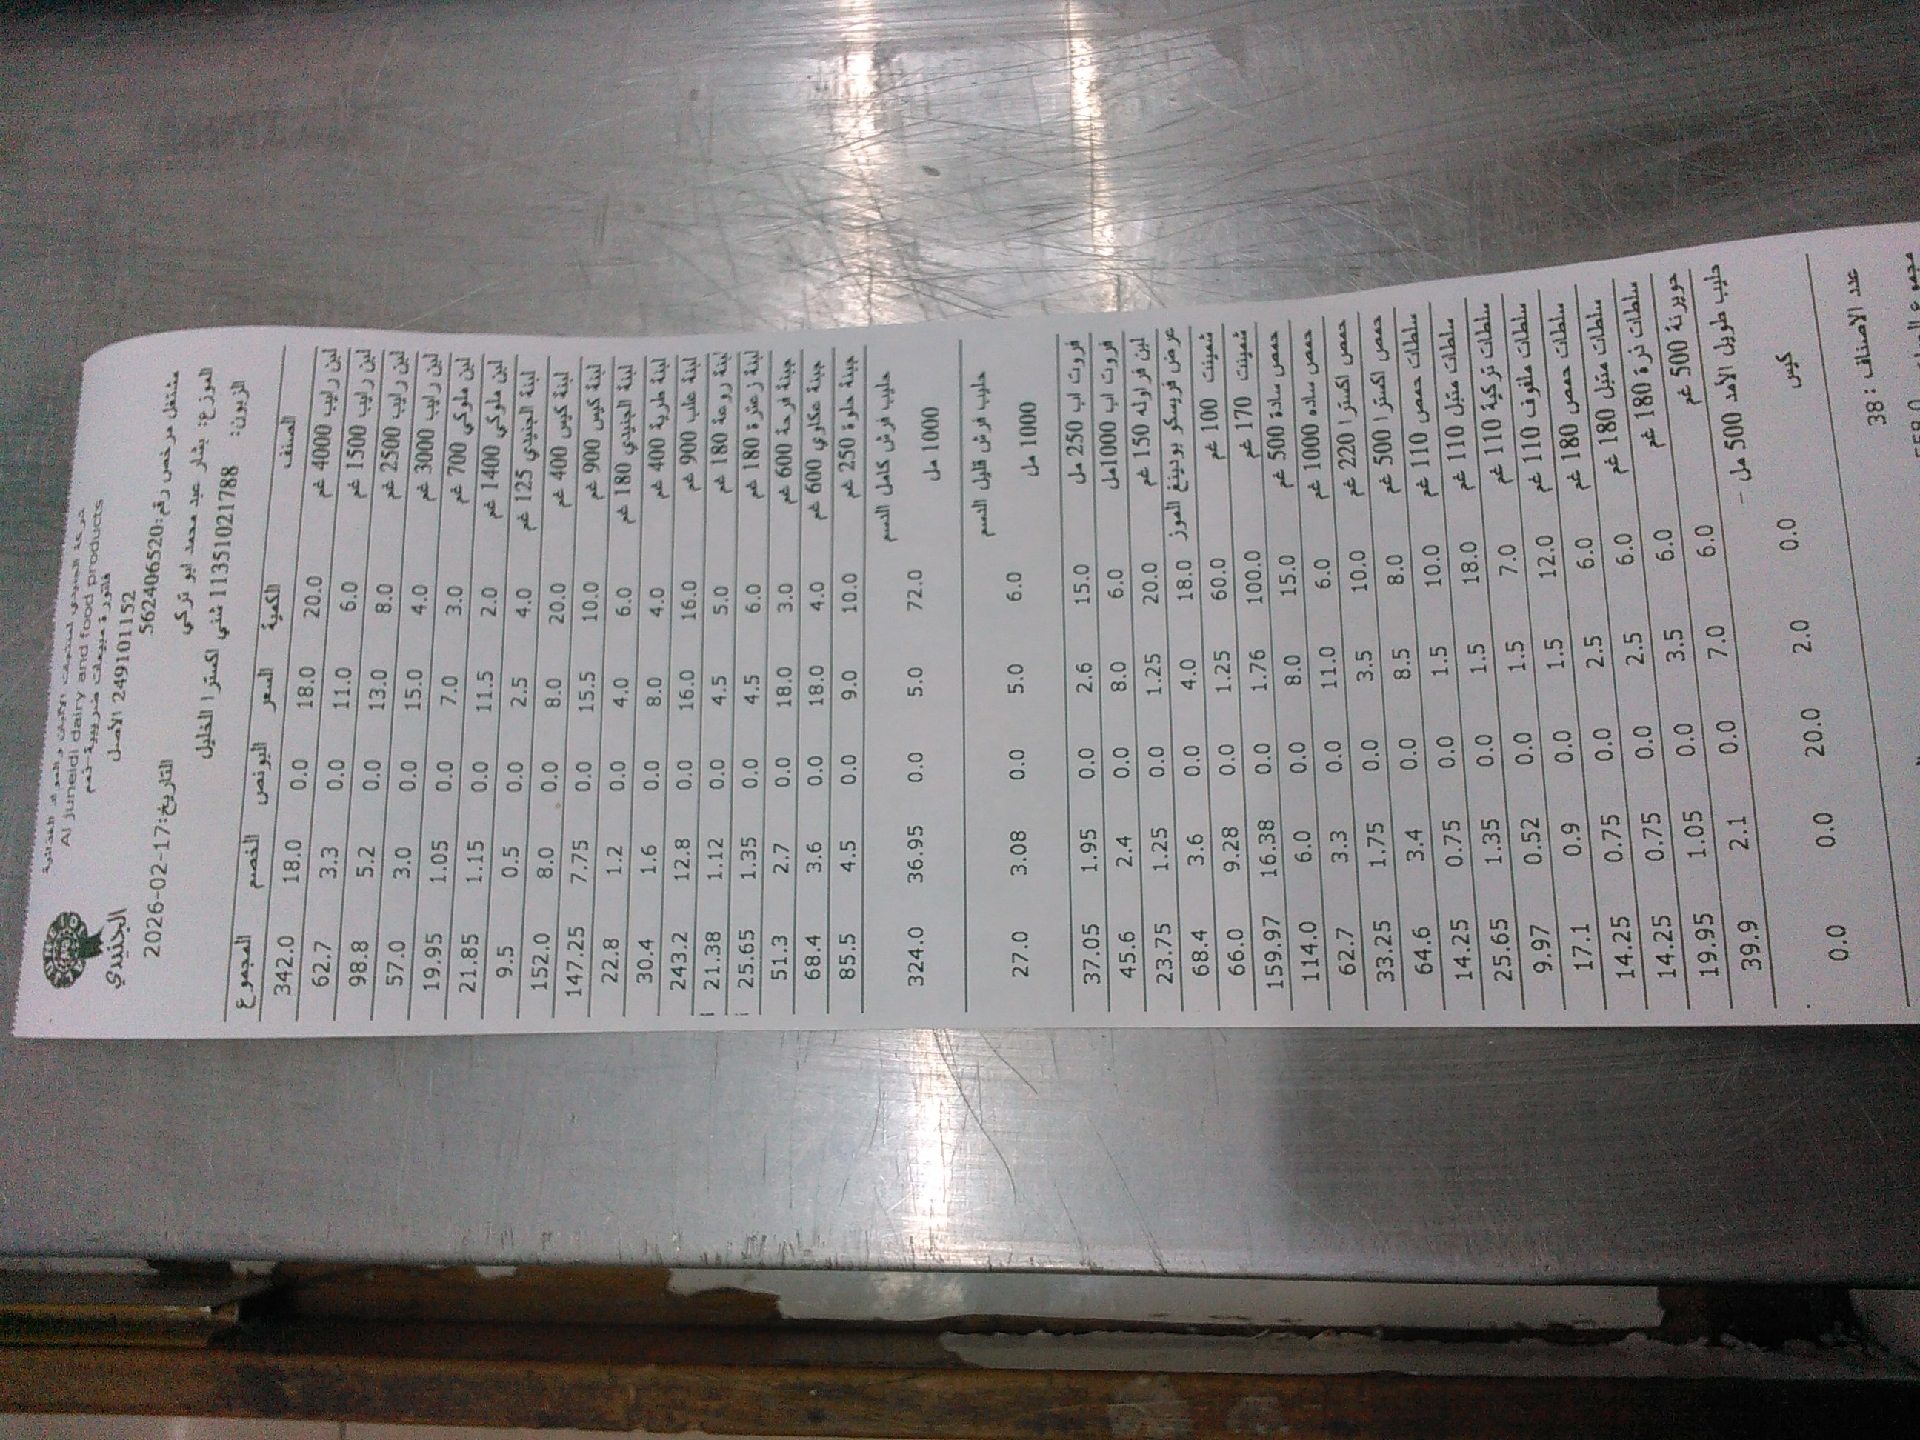 شركة الجنيدي لمنتجات الألبان والمواد الغذائية
Al juneidi dairy and food products
فاتورة مبيعات ضريبية-نعم
249101152 الأصل
الجنيدي
مشتغل مرخص رقم:562406520 التاريخ:17-02-2026
الموزع: بشار عبد محمد ابو تركي
الزبون: 11351021788 شني اكسترا الخليل
الصنف الكمية السعر البونص الخصم المجموع
لبن رايب 4000 غم 20.0 18.0 0.0 18.0 342.0
لبن رايب 1500 غم 6.0 11.0 0.0 3.3 62.7
لبن رايب 2500 غم 8.0 13.0 0.0 5.2 98.8
لبن رايب 3000 غم 4.0 15.0 0.0 3.0 57.0
لبن ملوكي 700 غم 3.0 7.0 0.0 1.05 19.95
لبن ملوكي 1400 غم 2.0 11.5 0.0 1.15 21.85
لبنة الجنيدي 125 غم 4.0 2.5 0.0 0.5 9.5
لبنة كيس 400 غم 20.0 8.0 0.0 8.0 152.0
لبنة كيس 900 غم 10.0 15.5 0.0 7.75 147.25
لبنة الجنيدي 180 غم 6.0 4.0 0.0 1.2 22.8
لبنة طرية 400 غم 4.0 8.0 0.0 1.6 30.4
لبنة علب 900 غم 16.0 16.0 0.0 12.8 243.2
لبنة روعة 180 غم 5.0 4.5 0.0 1.12 21.38
لبنة زعترة 180 غم 6.0 4.5 0.0 1.35 25.65
جبنة فرحة 600 غم 3.0 18.0 0.0 2.7 51.3
جبنة عكاوي 600 غم 4.0 18.0 0.0 3.6 68.4
جبنة حلوة 250 غم 10.0 9.0 0.0 4.5 85.5
حليب فرش كامل الدسم
1000 مل 72.0 5.0 0.0 36.95 324.0
حليب فرش قليل الدسم
1000 مل 6.0 5.0 0.0 3.08 27.0
فروت اب 250 مل 15.0 2.6 0.0 1.95 37.05
فروت اب 1000مل 6.0 8.0 0.0 2.4 45.6
لبن فراوله 150 غم 20.0 1.25 0.0 1.25 23.75
عرض فريسكو بودينغ الموز 18.0 4.0 0.0 3.6 68.4
شمينت 100 غم 60.0 1.25 0.0 9.28 66.0
شمينت 170 غم 100.0 1.76 0.0 16.38 159.97
حمص سادة 500 غم 15.0 8.0 0.0 6.0 114.0
حمص ساده 1000 غم 6.0 11.0 0.0 3.3 62.7
حمص اكسترا 220 غم 10.0 3.5 0.0 1.75 33.25
حمص اكسترا 500 غم 8.0 8.5 0.0 3.4 64.6
سلطات حمص 110 غم 10.0 1.5 0.0 0.75 14.25
سلطات متبل 110 غم 18.0 1.5 0.0 1.35 25.65
سلطات تركية 110 غم 7.0 1.5 0.0 0.52 9.97
سلطات ملفوف 110 غم 12.0 1.5 0.0 0.9 17.1
سلطات حمص 180 غم 6.0 2.5 0.0 0.75 14.25
سلطات متبل 180 غم 6.0 2.5 0.0 0.75 14.25
سلطات ذرة 180 غم 6.0 3.5 0.0 1.05 19.95
جويرنة 500 غم 6.0 7.0 0.0 2.1 39.9
حليب طويل الأمد 500 مل -
كيس 0.0 2.0 20.0 0.0 0.0
عدد الاصناف : 38